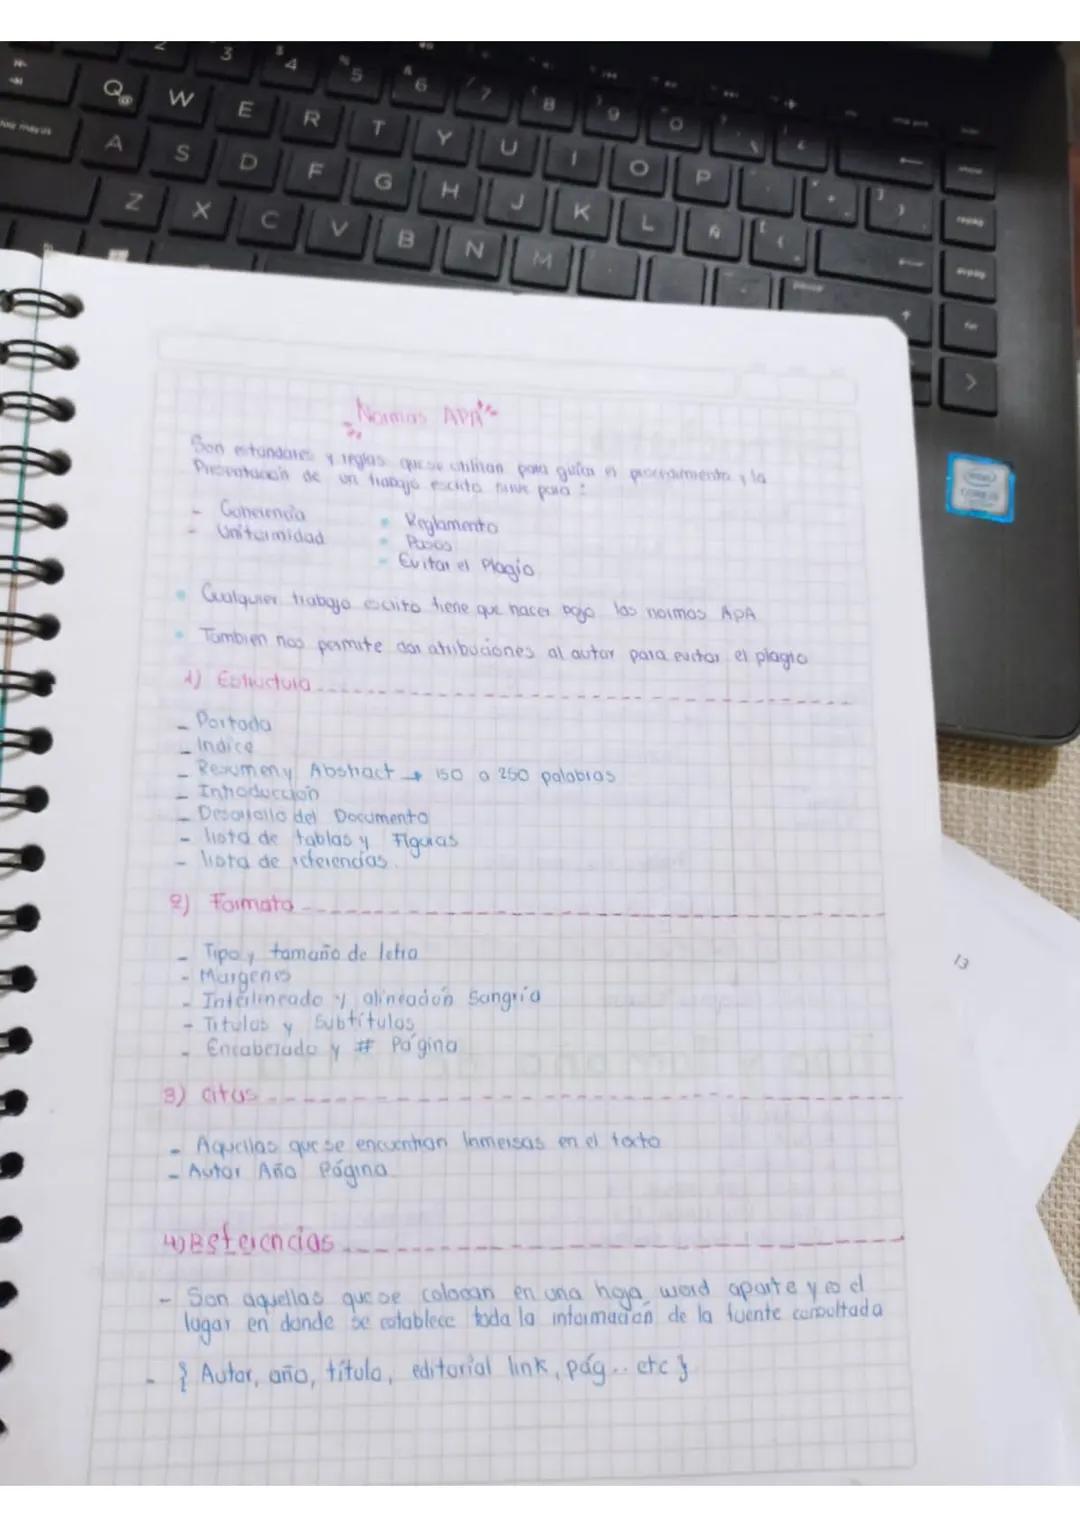 3 4 5 6 7 8 9 0
Q @ W E R T Y U I O P
A S D F G H J K L Ñ
Z X C V B N M
intel
CORE i5
Normas APA
Son estandares y reglas que se utilizan para guiar el procedimiento y la
Presentación de un trabajo escrito sirve para :
- Coherencia
- Uniformidad
• Reglamento
• Pasos
- Evitar el Plagio
• Cualquier trabajo escrito tiene que hacer bajo las normas APA
• Tambien nos permite dar atribuciones al autor para evitar el plagio
1) Estructura
- Portada
- Indice
- Resumen y Abstract → 150 a 250 palabras
- Introducción
- Desarrollo del Documento
- lista de tablas y Figuras
- lista de referencias.
2) Formato
- Tipo y tamaño de letra
- Margenes
- Interlineado y alineación Sangría
- Titulos y Subtítulos
- Encabezado y # Página
3) citas
- Aquellas que se encuentran Inmersas en el texto
- Autor Año Página
4) Referencias
- Son aquellas que se colocan en una hoja word aparte y es el
lugar en donde se establece toda la información de la fuente consultada
- { Autor, año, título, editorial link, pág.. etc }
13